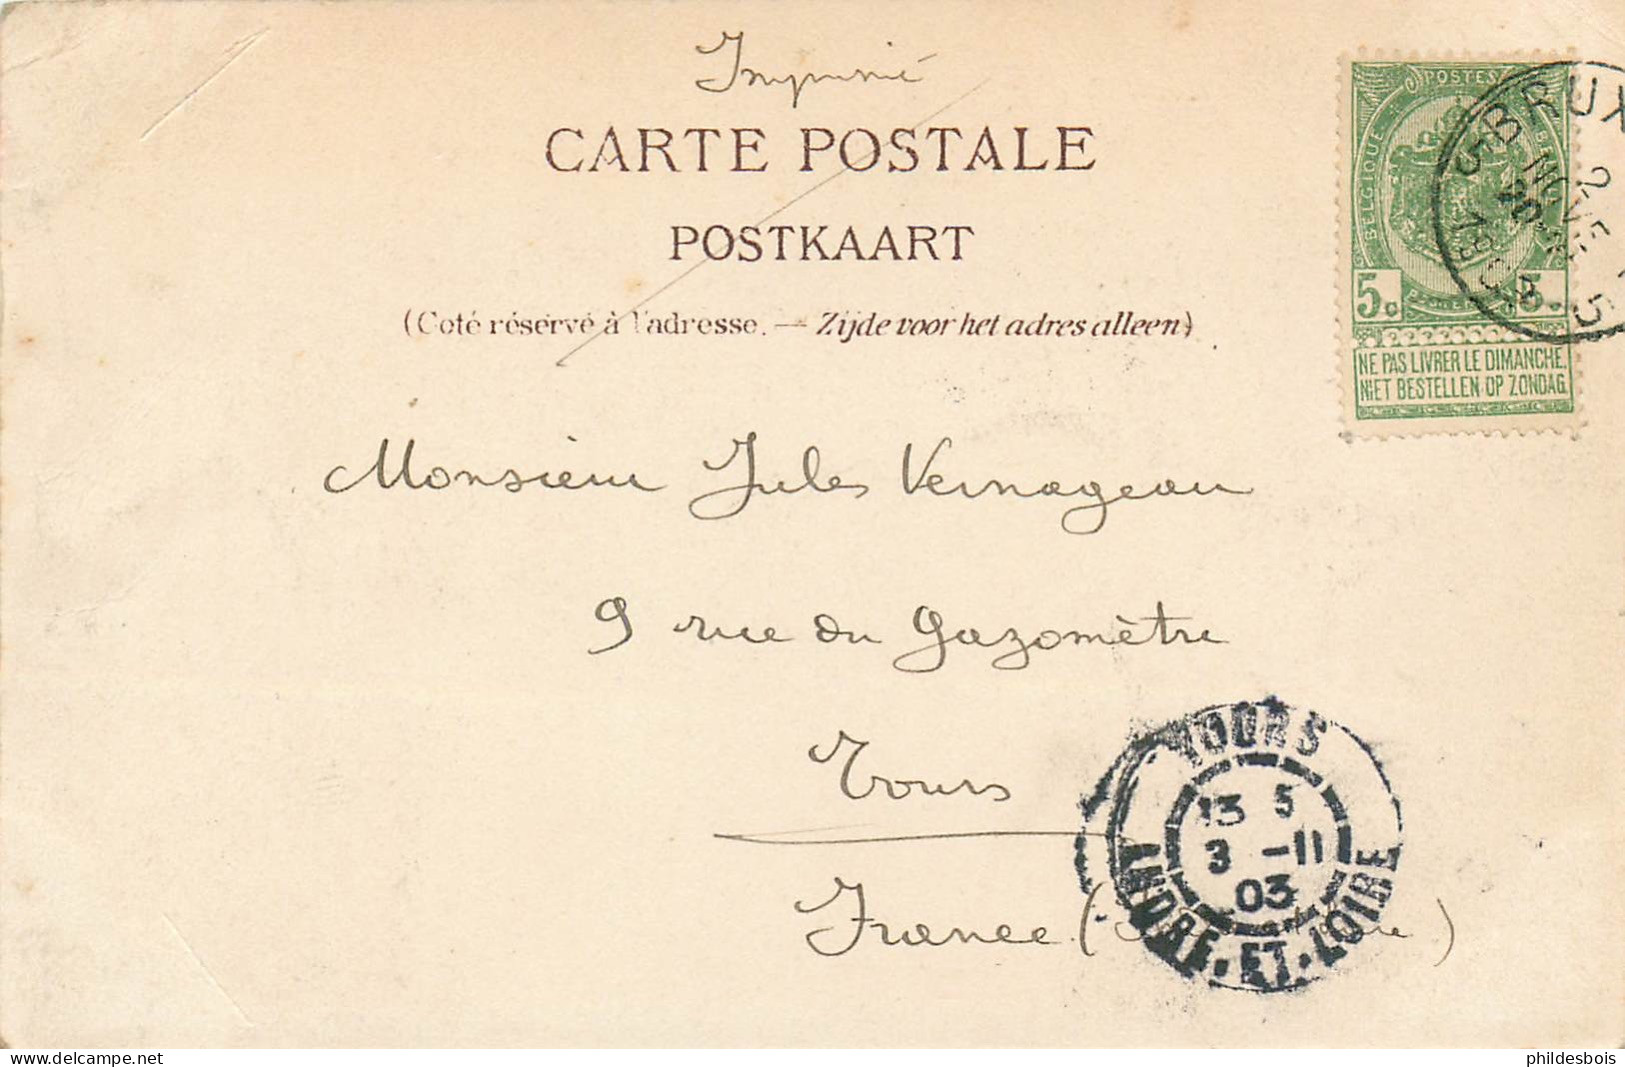 Imprimé
CARTE POSTALE
POSTKAART
(Coté réservé à l'adresse. — Zijde voor het adres alleen)
POSTES
BELGIQUE
5c 5c
NE PAS LIVRER LE DIMANCHE.
NIET BESTELLEN OP ZONDAG.
BRUX
2
NOVE
1903
Monsieur Jules Vernageau
9 rue du Gazomètre
Tours
France (
)
TOURS
13 5
3 -11
03
INDRE-ET-LOIRE
www.delcampe.net
phildesbois